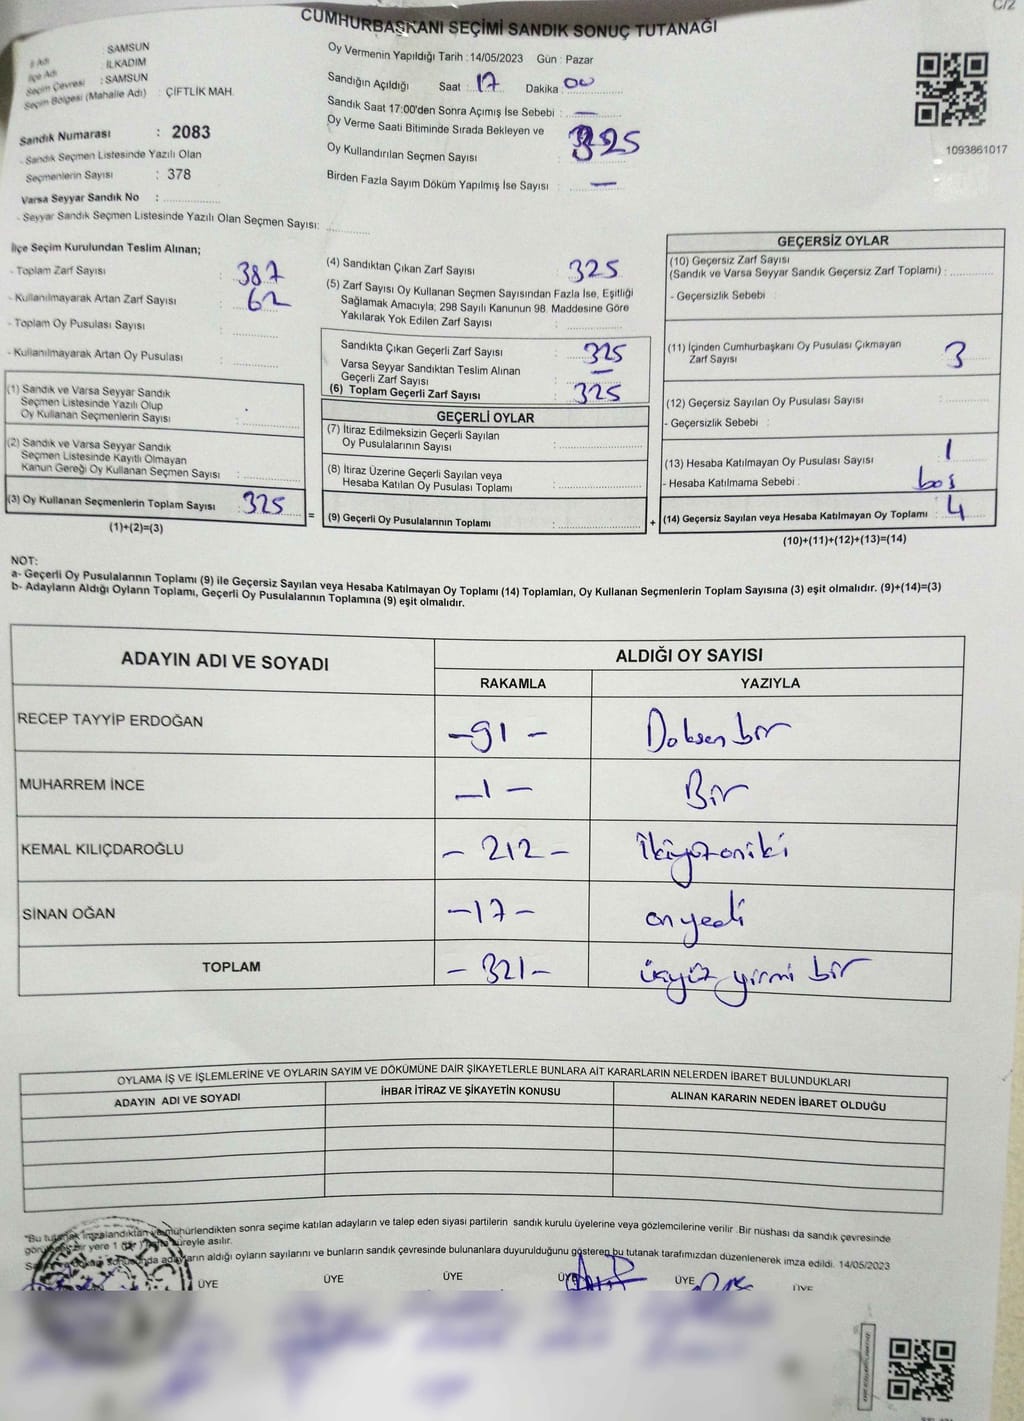 C/2
CUMHURBAŞKANI SEÇİMİ SANDIK SONUÇ TUTANAĞI
İl Adı : SAMSUN
İlçe Adı İLKADIM
Seçim Çevresi : SAMSUN
Seçim Bölgesi (Mahalle Adı) : ÇİFTLİK MAH.
Sandık Numarası : 2083
- Sandık Seçmen Listesinde Yazılı Olan
Seçmenlerin Sayısı : 378
Varsa Seyyar Sandık No :
- Seyyar Sandık Seçmen Listesinde Yazılı Olan Seçmen Sayısı:
Oy Vermenin Yapıldığı Tarih : 14/05/2023 Gün : Pazar
Sandığın Açıldığı Saat : 17 Dakika : 00
Sandık Saat 17:00'den Sonra Açımış İse Sebebi : —
Oy Verme Saati Bitiminde Sırada Bekleyen ve
Oy Kullandırılan Seçmen Sayısı : 325
Birden Fazla Sayım Döküm Yapılmış İse Sayısı : —
1093861017
İlçe Seçim Kurulundan Teslim Alınan;
- Toplam Zarf Sayısı : 387
- Kullanılmayarak Artan Zarf Sayısı : 62
- Toplam Oy Pusulası Sayısı :
- Kullanılmayarak Artan Oy Pusulası :
(1) Sandık ve Varsa Seyyar Sandık
Seçmen Listesinde Yazılı Olup
Oy Kullanan Seçmenlerin Sayısı :
(2) Sandık ve Varsa Seyyar Sandık
Seçmen Listesinde Kayıtlı Olmayan
Kanun Gereği Oy Kullanan Seçmen Sayısı :
(3) Oy Kullanan Seçmenlerin Toplam Sayısı : 325
(1)+(2)=(3)
=
(4) Sandıktan Çıkan Zarf Sayısı : 325
(5) Zarf Sayısı Oy Kullanan Seçmen Sayısından Fazla İse, Eşitliği
Sağlamak Amacıyla; 298 Sayılı Kanunun 98. Maddesine Göre
Yakılarak Yok Edilen Zarf Sayısı :
Sandıkta Çıkan Geçerli Zarf Sayısı : 325
Varsa Seyyar Sandıktan Teslim Alınan
Geçerli Zarf Sayısı : —
(6) Toplam Geçerli Zarf Sayısı : 325
GEÇERLİ OYLAR
(7) İtiraz Edilmeksizin Geçerli Sayılan
Oy Pusulalarının Sayısı :
(8) İtiraz Üzerine Geçerli Sayılan veya
Hesaba Katılan Oy Pusulası Toplamı :
(9) Geçerli Oy Pusulalarının Toplamı :
+
GEÇERSİZ OYLAR
(10) Geçersiz Zarf Sayısı
(Sandık ve Varsa Seyyar Sandık Geçersiz Zarf Toplamı) :
- Geçersizlik Sebebi :
(11) İçinden Cumhurbaşkanı Oy Pusulası Çıkmayan
Zarf Sayısı : 3
(12) Geçersiz Sayılan Oy Pusulası Sayısı :
- Geçersizlik Sebebi :
(13) Hesaba Katılmayan Oy Pusulası Sayısı : 1
- Hesaba Katılmama Sebebi : boş
(14) Geçersiz Sayılan veya Hesaba Katılmayan Oy Toplamı : 4
(10)+(11)+(12)+(13)=(14)
NOT:
a- Geçerli Oy Pusulalarının Toplamı (9) ile Geçersiz Sayılan veya Hesaba Katılmayan Oy Toplamı (14) Toplamları, Oy Kullanan Seçmenlerin Toplam Sayısına (3) eşit olmalıdır. (9)+(14)=(3)
b- Adayların Aldığı Oyların Toplamı, Geçerli Oy Pusulalarının Toplamına (9) eşit olmalıdır.
ADAYIN ADI VE SOYADI ALDIĞI OY SAYISI
RAKAMLA YAZIYLA
RECEP TAYYİP ERDOĞAN -91- Doksan bir
MUHARREM İNCE -1- Bir
KEMAL KILIÇDAROĞLU -212- İkiyüzoniki
SİNAN OĞAN -17- onyedi
TOPLAM -321- üçyüz yirmi bir
OYLAMA İŞ VE İŞLEMLERİNE VE OYLARIN SAYIM VE DÖKÜMÜNE DAİR ŞİKAYETLERLE BUNLARA AİT KARARLARIN NELERDEN İBARET BULUNDUKLARI
ADAYIN ADI VE SOYADI İHBAR İTİRAZ VE ŞİKAYETİN KONUSU ALINAN KARARIN NEDEN İBARET OLDUĞU
"Bu tutanak imzalandıktan ve mühürlendikten sonra seçime katılan adayların ve talep eden siyasi partilerin sandık kurulu üyelerine veya gözlemcilerine verilir .Bir nüshası da sandık çevresinde
bir yere 1 süreyle asılır.
adayların aldığı oyların sayılarını ve bunların sandık çevresinde bulunanlara duyurulduğunu gösteren bu tutanak tarafımızdan düzenlenerek imza edildi. 14/05/2023
ÜYE ÜYE ÜYE ÜYE ÜYE ÜYE